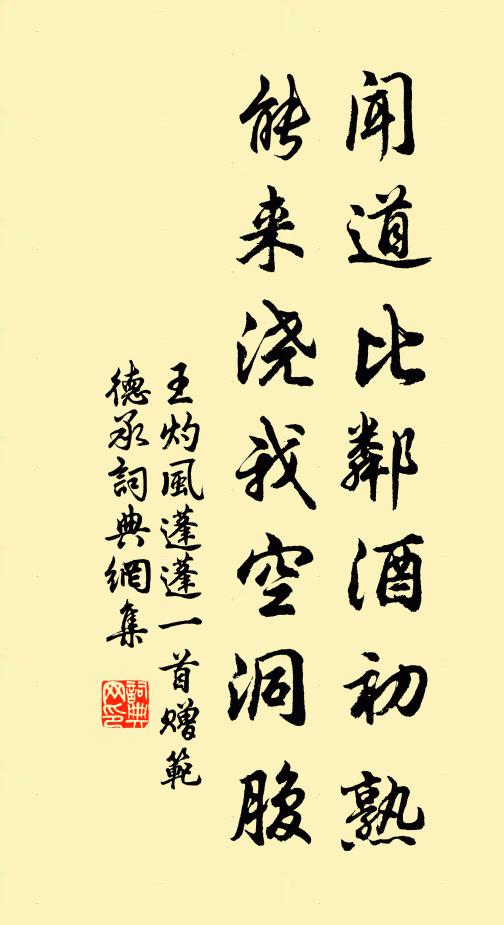 闻道比鄰酒初熟
能来浇我空洞腹
王灼風蓬蓬一首贈範
德承詞典網集
詞典网印